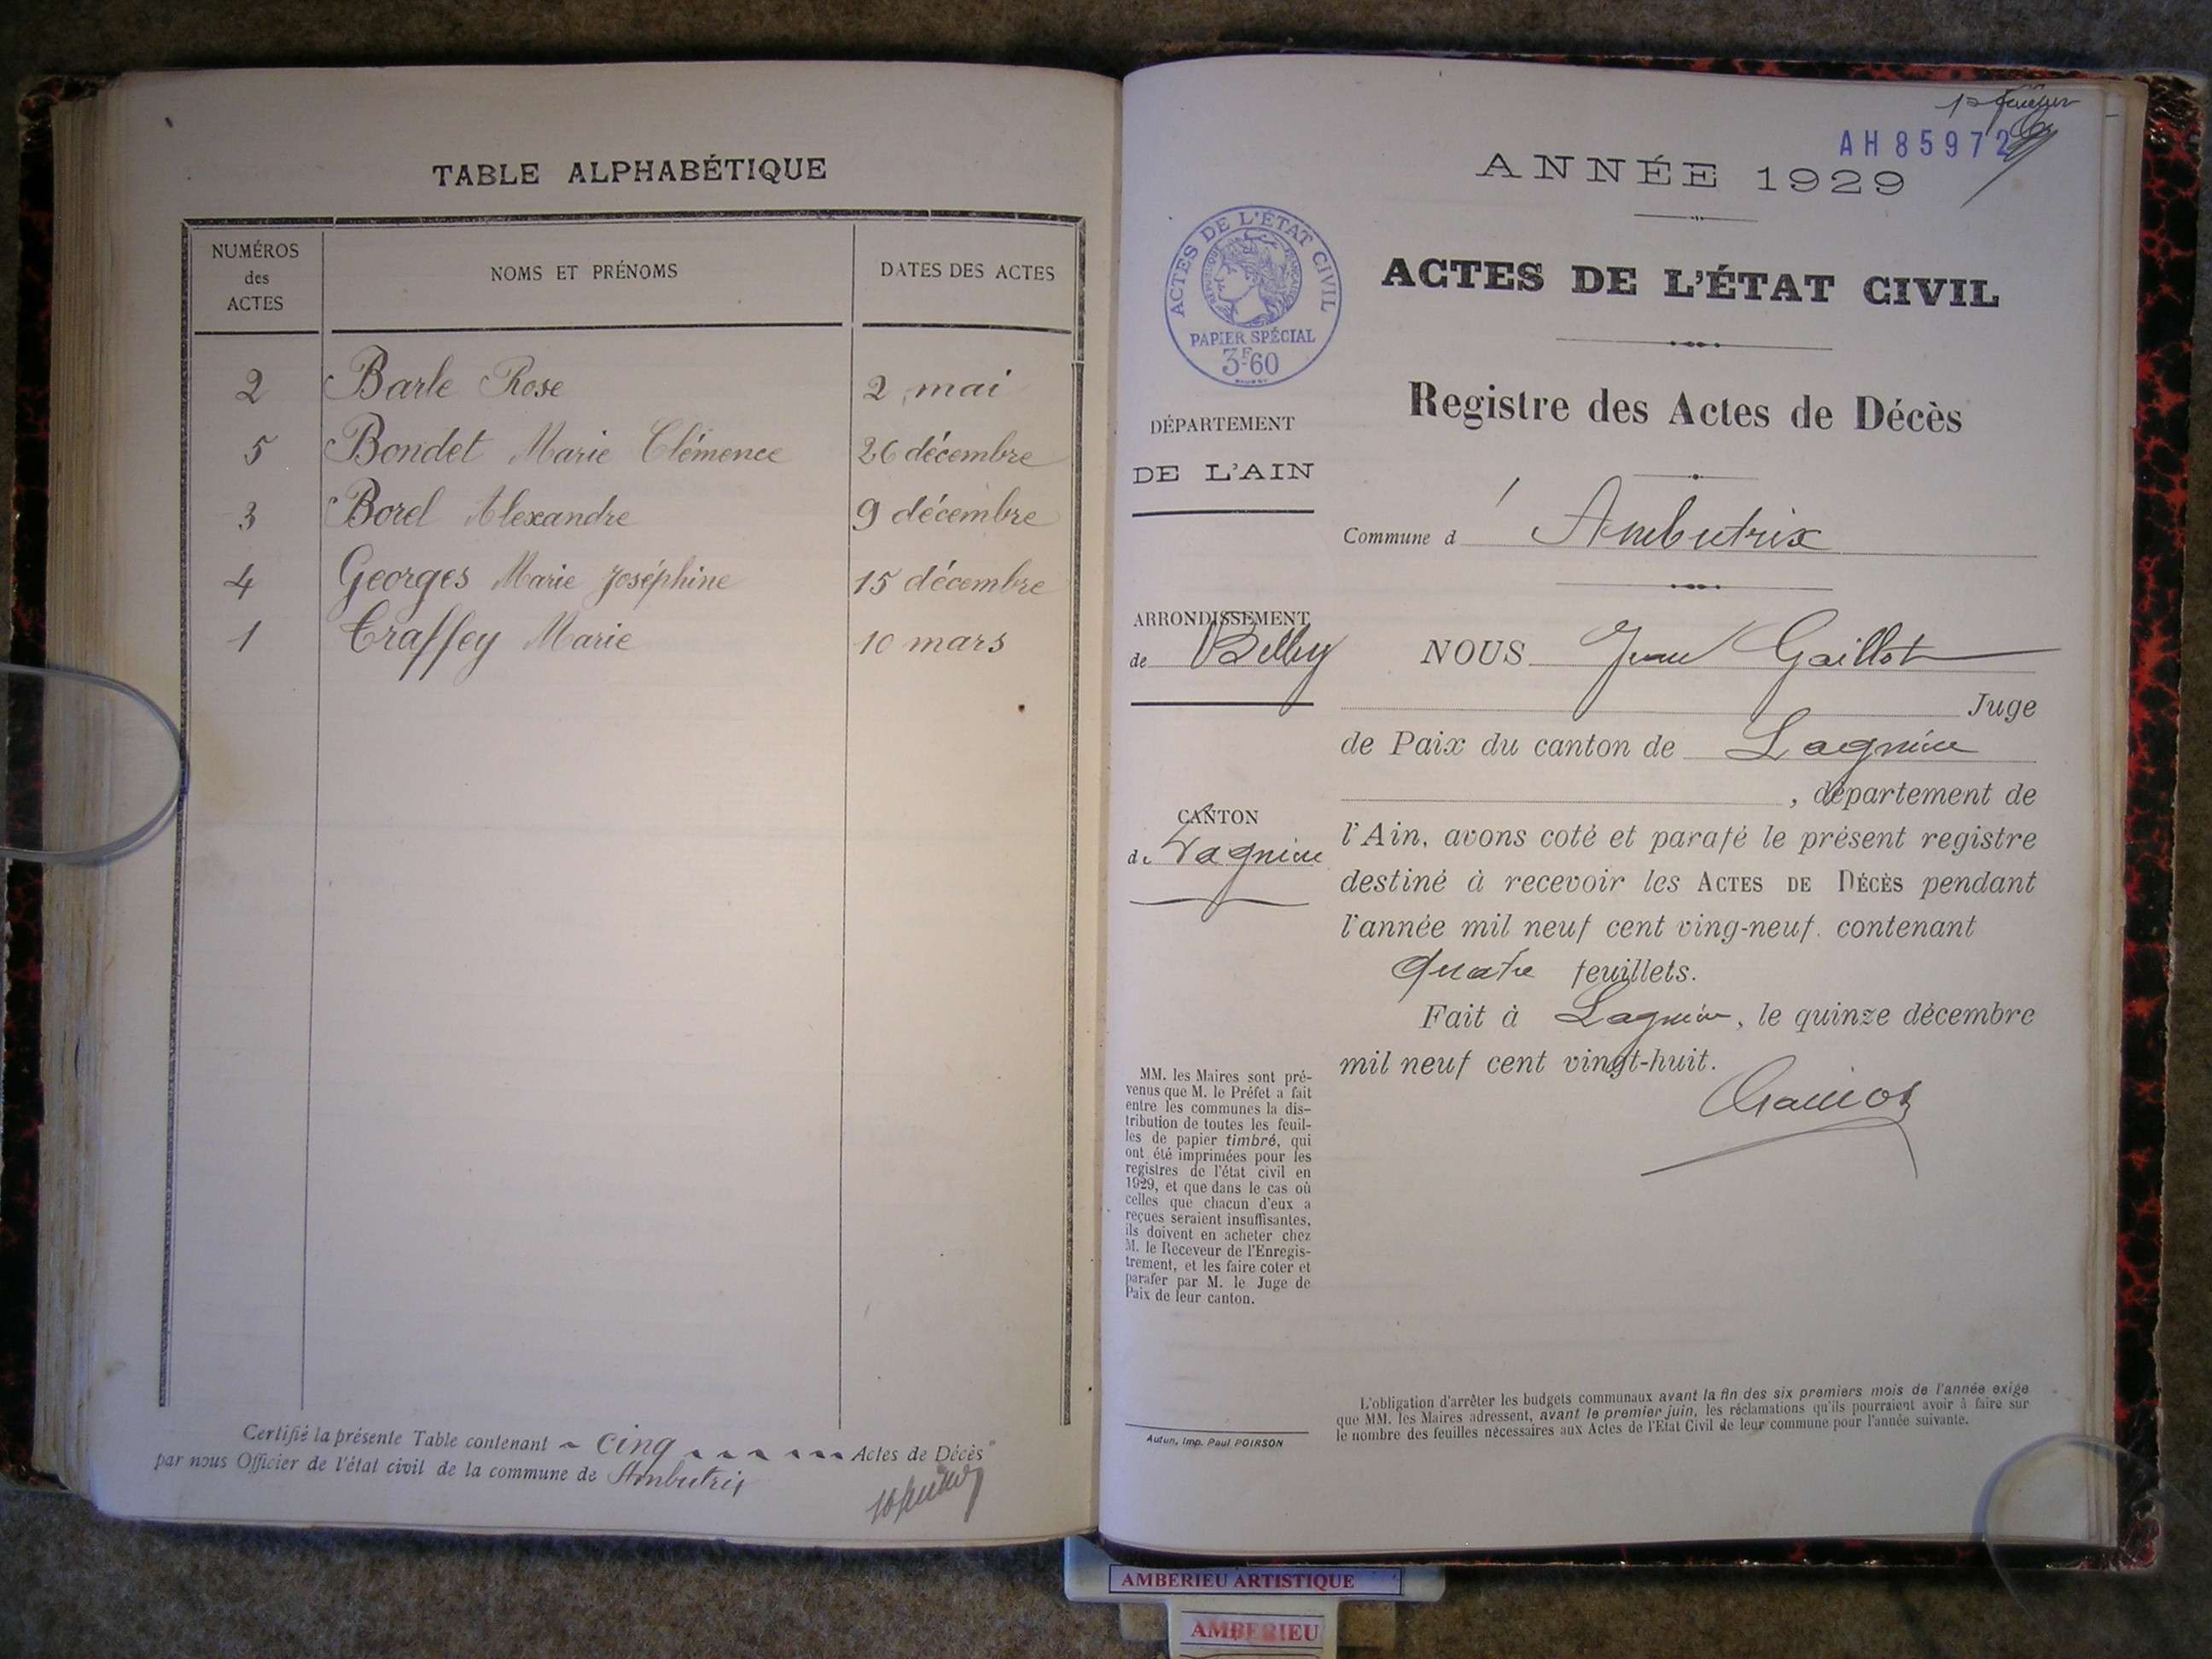 TABLE ALPHABÉTIQUE
NUMÉROS
des
ACTES
NOMS ET PRÉNOMS
DATES DES ACTES
2 Barle Rose 2 mai
5 Bondet Marie Clémence 26 décembre
3 Borel Alexandre 9 décembre
4 Georges Marie Joséphine 15 décembre
1 Traffey Marie 10 mars
Certifié la présente Table contenant cinq Actes de Décès
par nous Officier de l'état civil de la commune de Ambutrix
AH 85972
ANNÉE 1929
ACTES DE L'ÉTAT CIVIL
RÉPUBLIQUE FRANÇAISE
PAPIER SPÉCIAL
3F60
ACTES DE L'ÉTAT CIVIL
Registre des Actes de Décès
DÉPARTEMENT
DE L'AIN
Commune d'Ambutrix
ARRONDISSEMENT
de Belley
CANTON
de Lagnieu
NOUS Jean Gaillot
Juge
de Paix du canton de Lagnieu
, département de
l'Ain, avons coté et parafé le présent registre
destiné à recevoir les ACTES DE DÉCÈS pendant
l'année mil neuf cent ving-neuf. contenant
quatre feuillets.
Fait à Lagnieu, le quinze décembre
mil neuf cent vingt-huit.
MM. les Maires sont pré-
venus que M. le Préfet a fait
entre les communes la dis-
tribution de toutes les feuil-
les de papier timbré, qui
ont été imprimées pour les
registres de l'état civil en
1929, et que dans le cas où
celles que chacun d'eux a
reçues seraient insuffisantes,
ils doivent en acheter chez
M. le Receveur de l'Enregis-
trement, et les faire coter et
parafer par M. le Juge de
Paix de leur canton.
Autun, Imp. Paul POIRSON
L'obligation d'arrêter les budgets communaux avant la fin des six premiers mois de l'année exige
que MM. les Maires adressent, avant le premier juin, les réclamations qu'ils pourraient avoir à faire sur
le nombre des feuilles nécessaires aux Actes de l'Etat Civil de leur commune pour l'année suivante.
AMBERIEU ARTISTIQUE
AMBERIEU